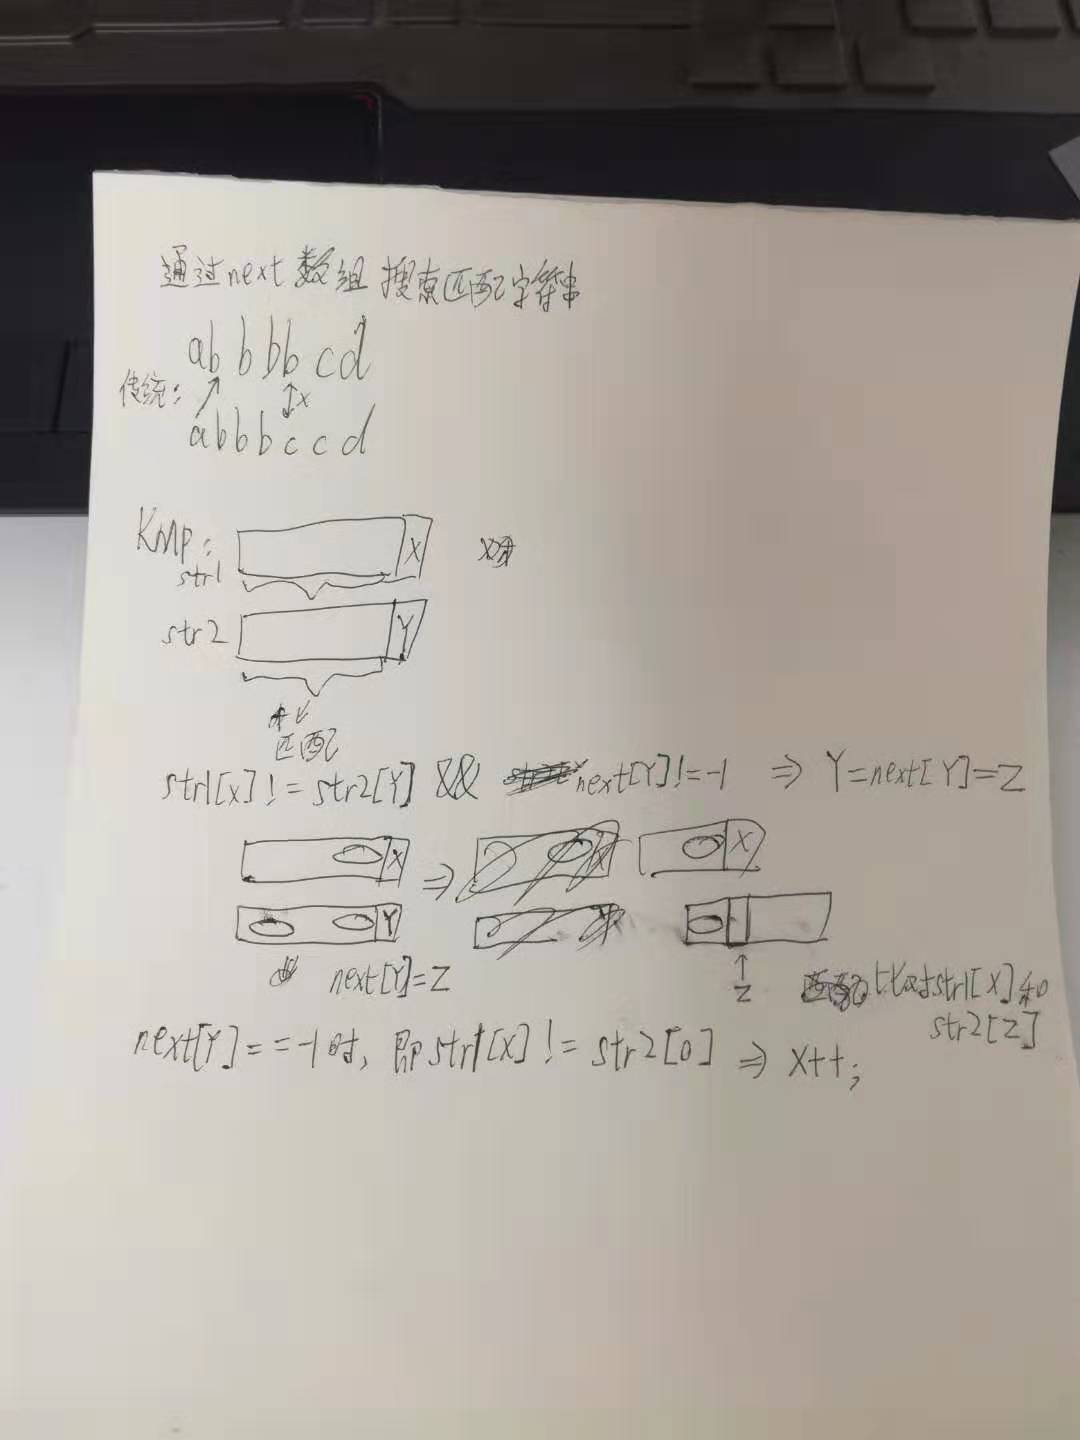 通过next数组搜索匹配字符串
abbbbcd
传统: x
abbbccd
KMP: X
str1
str2 Y
匹配
str1[x]!=str2[Y] && next[Y]!=-1 ⇒ Y=next[Y]=Z
X ⇒ X
Y
next[Y]=Z Z 比对str1[X]和
str2[Z]
next[Y]==-1时,即str1[X]!=str2[0] ⇒ X++;